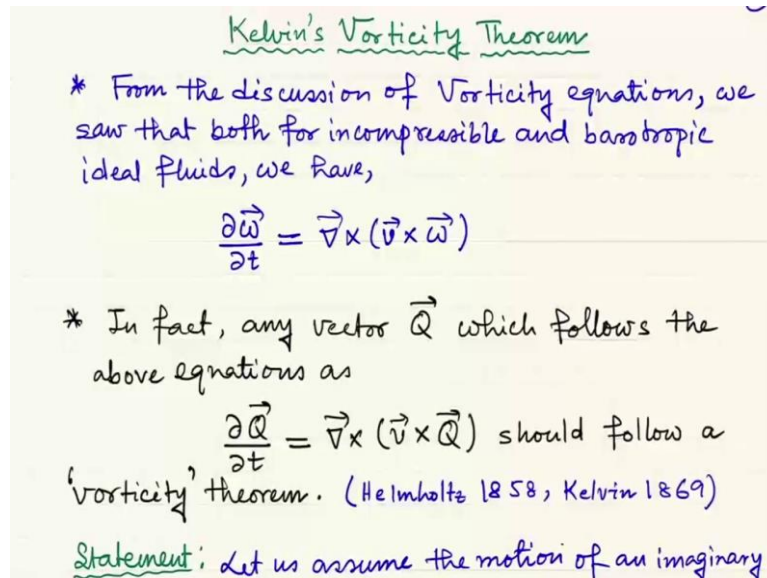 Kelvin's Vorticity Theorem
* From the discussion of Vorticity equations, we
saw that both for incompressible and barotropic
ideal fluids, we have,
∂ω⃗/∂t = ∇⃗×(v⃗×ω⃗)
* In fact, any vector Q⃗ which follows the
above equations as
∂Q⃗/∂t = ∇⃗×(v⃗×Q⃗) should follow a
'vorticity' theorem. (Helmholtz 1858, Kelvin 1869)
Statement: Let us assume the motion of an imaginary